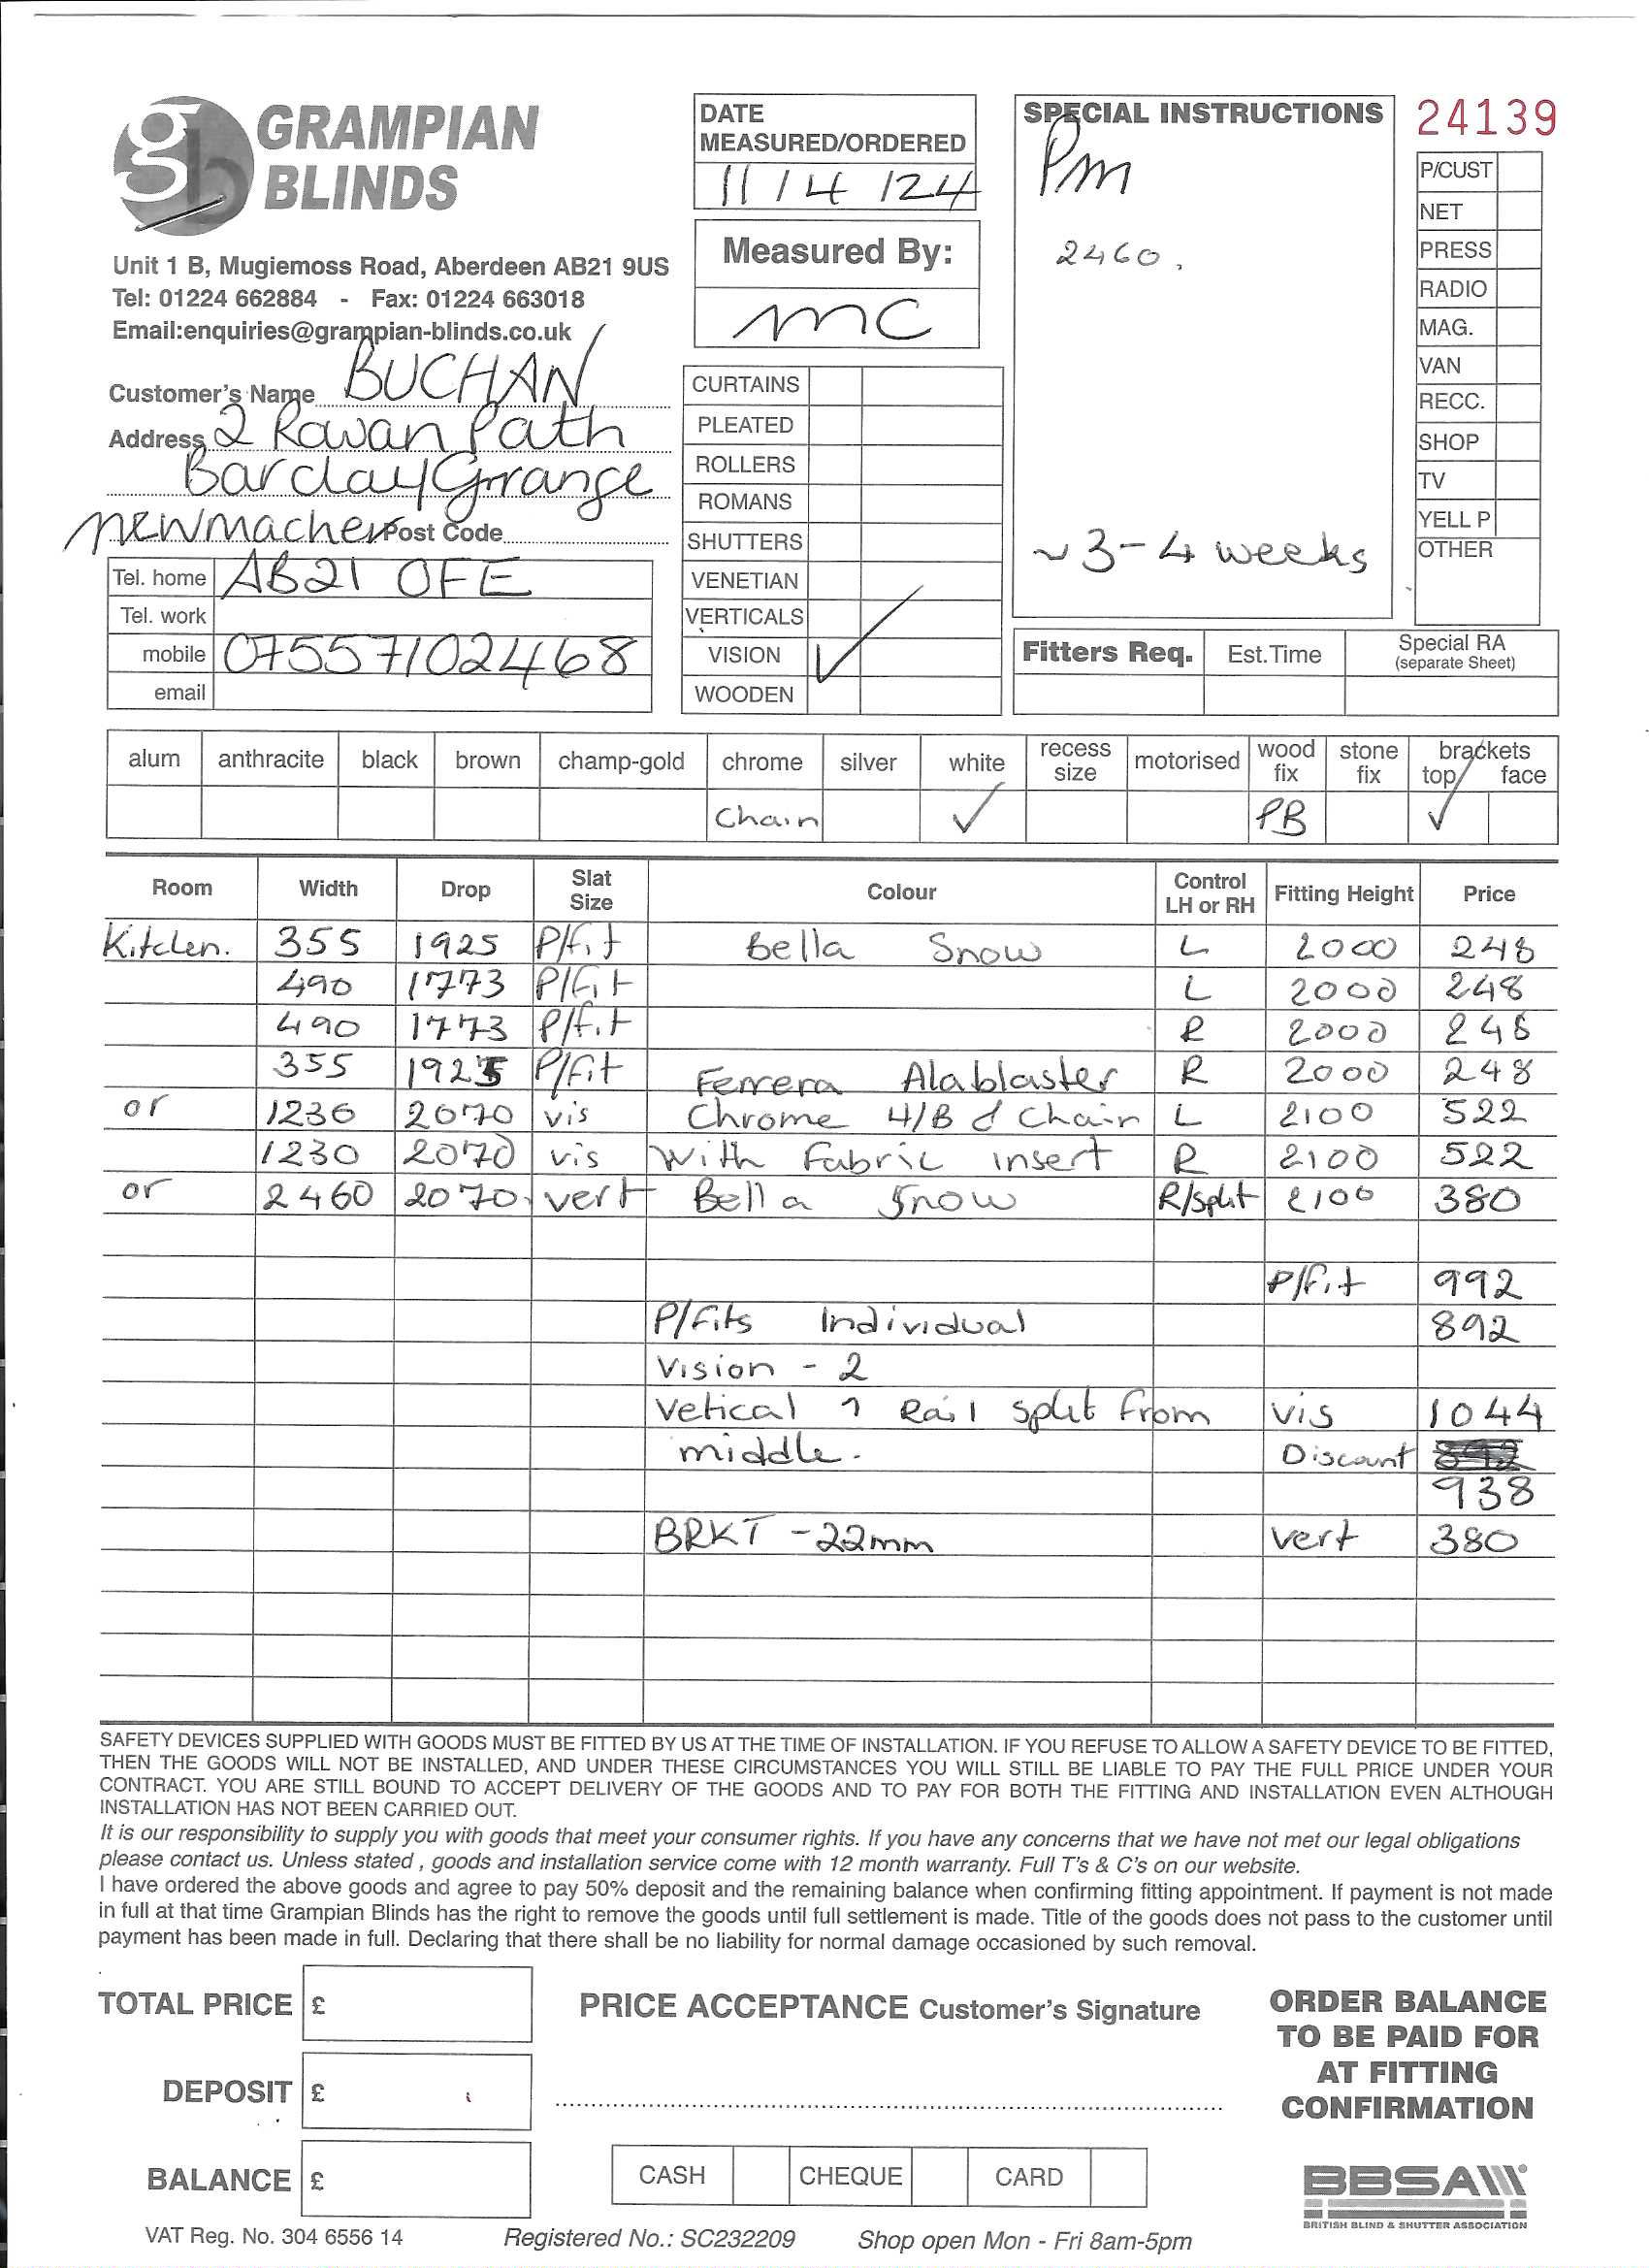 GRAMPIAN
BLINDS
Unit 1 B, Mugiemoss Road, Aberdeen AB21 9US
Tel: 01224 662884 - Fax: 01224 663018
Email:enquiries@grampian-blinds.co.uk
Customer's Name BUCHAN
Address 2 Rowan Path
Barclay Grange
Newmacher Post Code
Tel. home AB21 0FE
Tel. work
mobile 07557102468
email
DATE
MEASURED/ORDERED
11/4/24
Measured By:
MC
CURTAINS
PLEATED
ROLLERS
ROMANS
SHUTTERS
VENETIAN
VERTICALS
VISION ✓
WOODEN
SPECIAL INSTRUCTIONS
Pm
2460.
~3-4 weeks
24139
P/CUST
NET
PRESS
RADIO
MAG.
VAN
RECC.
SHOP
TV
YELL P
OTHER
Fitters Req. Est.Time Special RA
(separate Sheet)
alum anthracite black brown champ-gold chrome silver white recess size motorised wood fix stone fix brackets top face
Chain ✓ PB ✓
Room Width Drop Slat Size Colour Control LH or RH Fitting Height Price
Kitchen. 355 1925 P/fit Bella Snow L 2000 248
490 1773 P/Fit L 2000 248
490 1773 P/fit R 2000 248
355 1925 P/Fit Ferrera Alablaster R 2000 248
or 1236 2070 vis Chrome 4/B d Chain L 2100 522
1230 2070 vis With Fabric insert R 2100 522
or 2460 2070. vert Bella Snow R/split 2100 380
P/Fit 992
P/Fits Individual 892
Vision - 2
Vetical 1 Rail split from vis 1044
middle. Discount
938
BRKT - 22mm vert 380
SAFETY DEVICES SUPPLIED WITH GOODS MUST BE FITTED BY US AT THE TIME OF INSTALLATION. IF YOU REFUSE TO ALLOW A SAFETY DEVICE TO BE FITTED,
THEN THE GOODS WILL NOT BE INSTALLED, AND UNDER THESE CIRCUMSTANCES YOU WILL STILL BE LIABLE TO PAY THE FULL PRICE UNDER YOUR
CONTRACT. YOU ARE STILL BOUND TO ACCEPT DELIVERY OF THE GOODS AND TO PAY FOR BOTH THE FITTING AND INSTALLATION EVEN ALTHOUGH
INSTALLATION HAS NOT BEEN CARRIED OUT.
It is our responsibility to supply you with goods that meet your consumer rights. If you have any concerns that we have not met our legal obligations
please contact us. Unless stated , goods and installation service come with 12 month warranty. Full T's & C's on our website.
I have ordered the above goods and agree to pay 50% deposit and the remaining balance when confirming fitting appointment. If payment is not made
in full at that time Grampian Blinds has the right to remove the goods until full settlement is made. Title of the goods does not pass to the customer until
payment has been made in full. Declaring that there shall be no liability for normal damage occasioned by such removal.
TOTAL PRICE £
DEPOSIT £
BALANCE £
PRICE ACCEPTANCE Customer's Signature
CASH CHEQUE CARD
ORDER BALANCE
TO BE PAID FOR
AT FITTING
CONFIRMATION
BBSA
BRITISH BLIND & SHUTTER ASSOCIATION
VAT Reg. No. 304 6556 14 Registered No.: SC232209 Shop open Mon - Fri 8am-5pm